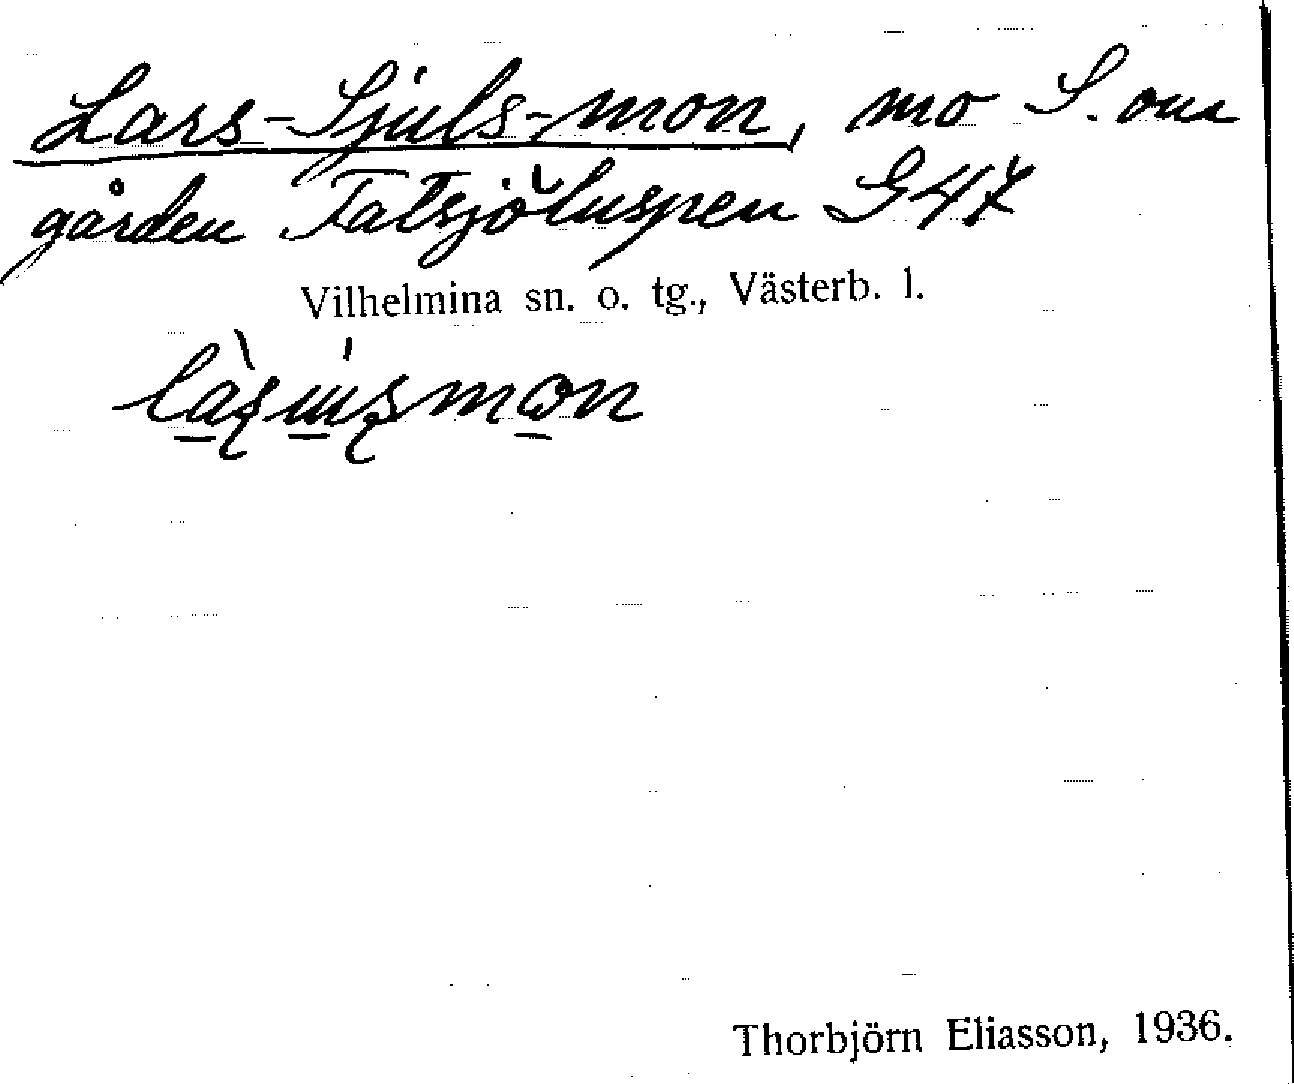 Lars-Sjuls-mon, mo S. om
gården Fatsjöluspen G47
Vilhelmina sn. o. tg., Västerb. l.
Thorbjörn Eliasson, 1936.